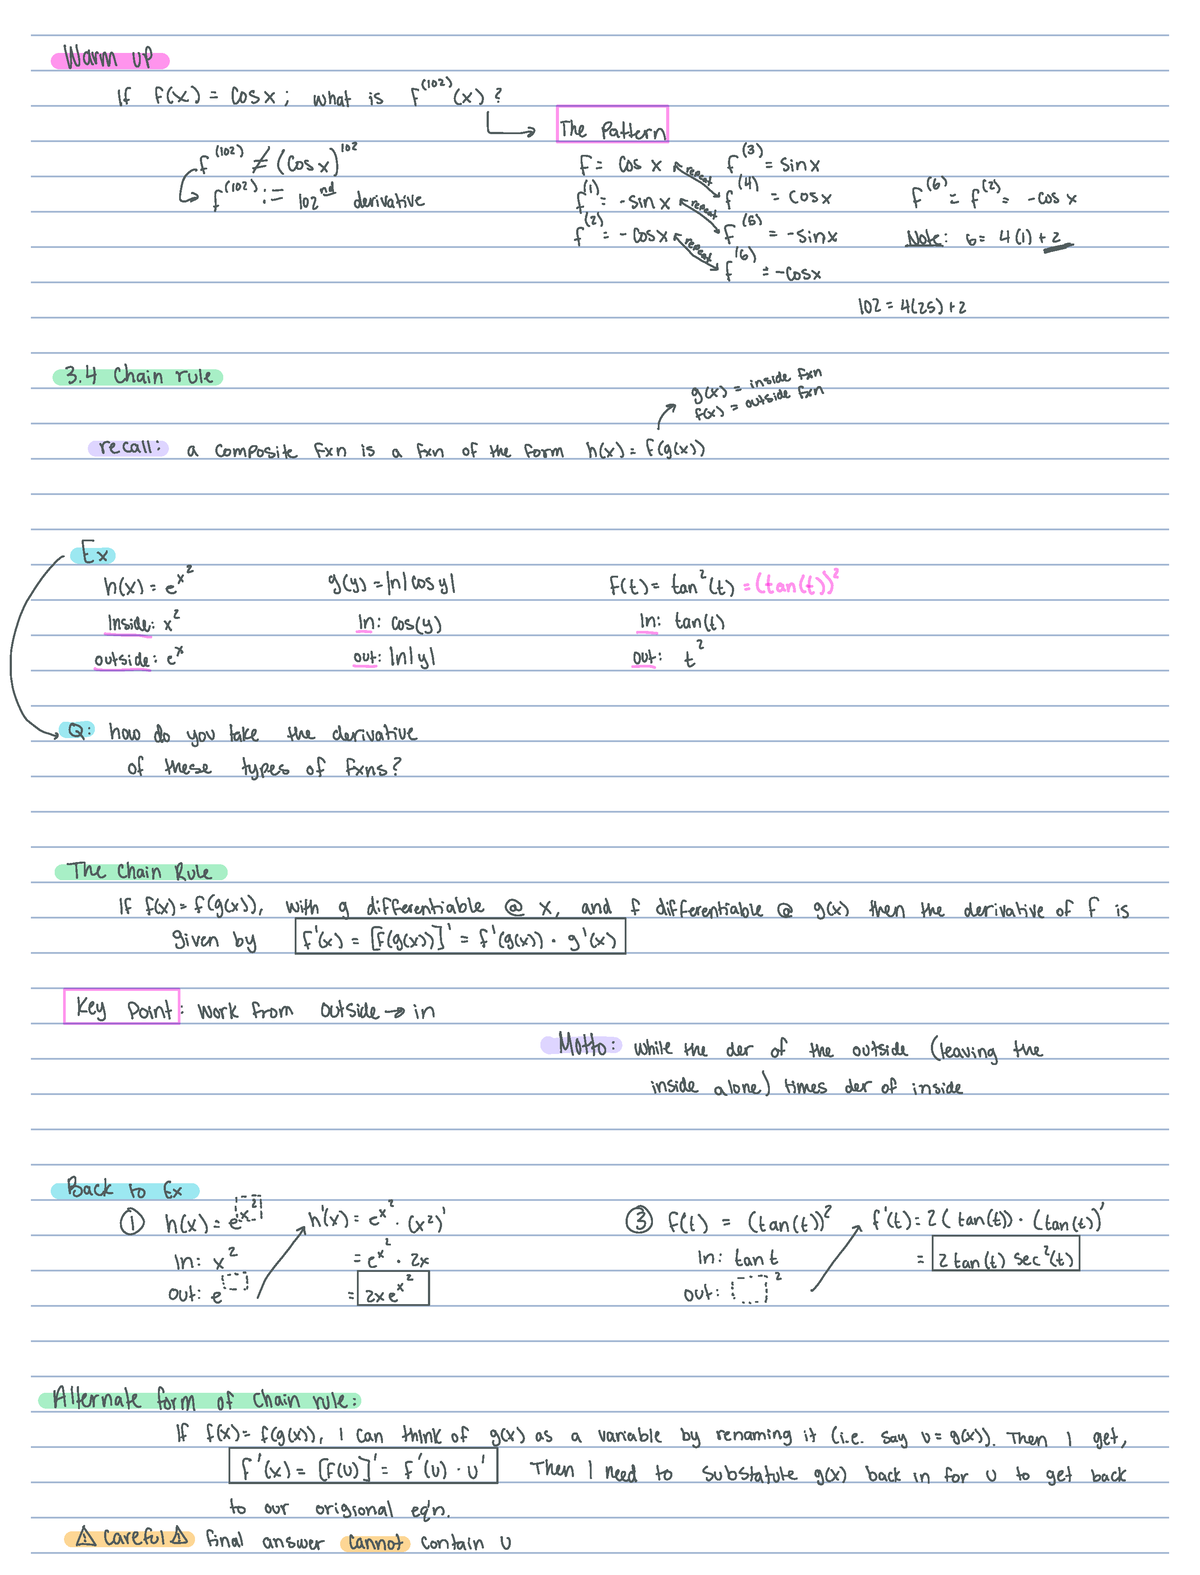 Warm up
If f(x) = cosx; what is f^(102)(x)?
The Pattern
f^(102) ≠ (cosx)^102
f^(102) := 102nd derivative
F = cos x
repeat
f^(3) = sinx
f^(1) = -sinx
repeat
f^(4) = cosx
f^(6) = f^(2) = -cos x
f^(2) = -cosx
repeat
f^(5) = -sinx
Note: 6 = 4(1)+2
f^(6) = -cosx
102 = 4(25)+2
3.4 Chain rule
g(x) = inside fxn
f(x) = outside fxn
recall: a composite fxn is a fxn of the form h(x) = f(g(x))
Ex
h(x) = e^x^2
g(y) = ln|cosy|
f(t) = tan^2(t) = (tan(t))^2
Inside: x^2
In: cos(y)
In: tan(t)
outside: e^x
out: ln|y|
out: t^2
Q: how do you take the derivative
of these types of fxns?
The Chain Rule
If f(x) = f(g(x)), with g differentiable @ x, and f differentiable @ g(x) then the derivative of F is
given by F'(x) = [F(g(x))]' = f'(g(x)) · g'(x)
Key Point: work from outside → in
Motto: While the der of the outside (leaving the
inside alone) times der of inside
Back to Ex
① h(x) = e^x^2
h'(x) = e^x^2 · (x^2)'
③ f(t) = (tan(t))^2
f'(t) = 2(tan(t)) · (tan(t))'
In: x^2
= e^x^2 · 2x
In: tan t
= 2 tan(t) sec^2(t)
out: e
= 2xe^x^2
out: 2
Alternate form of Chain rule:
If f(x) = f(g(x)), I can think of g(x) as a variable by renaming it (i.e. say u = g(x)). Then I get,
F'(x) = [F(u)]' = f'(u) · u' Then I need to substatute g(x) back in for u to get back
to our origional eq'n.
⚠ Careful ⚠ final answer cannot contain u